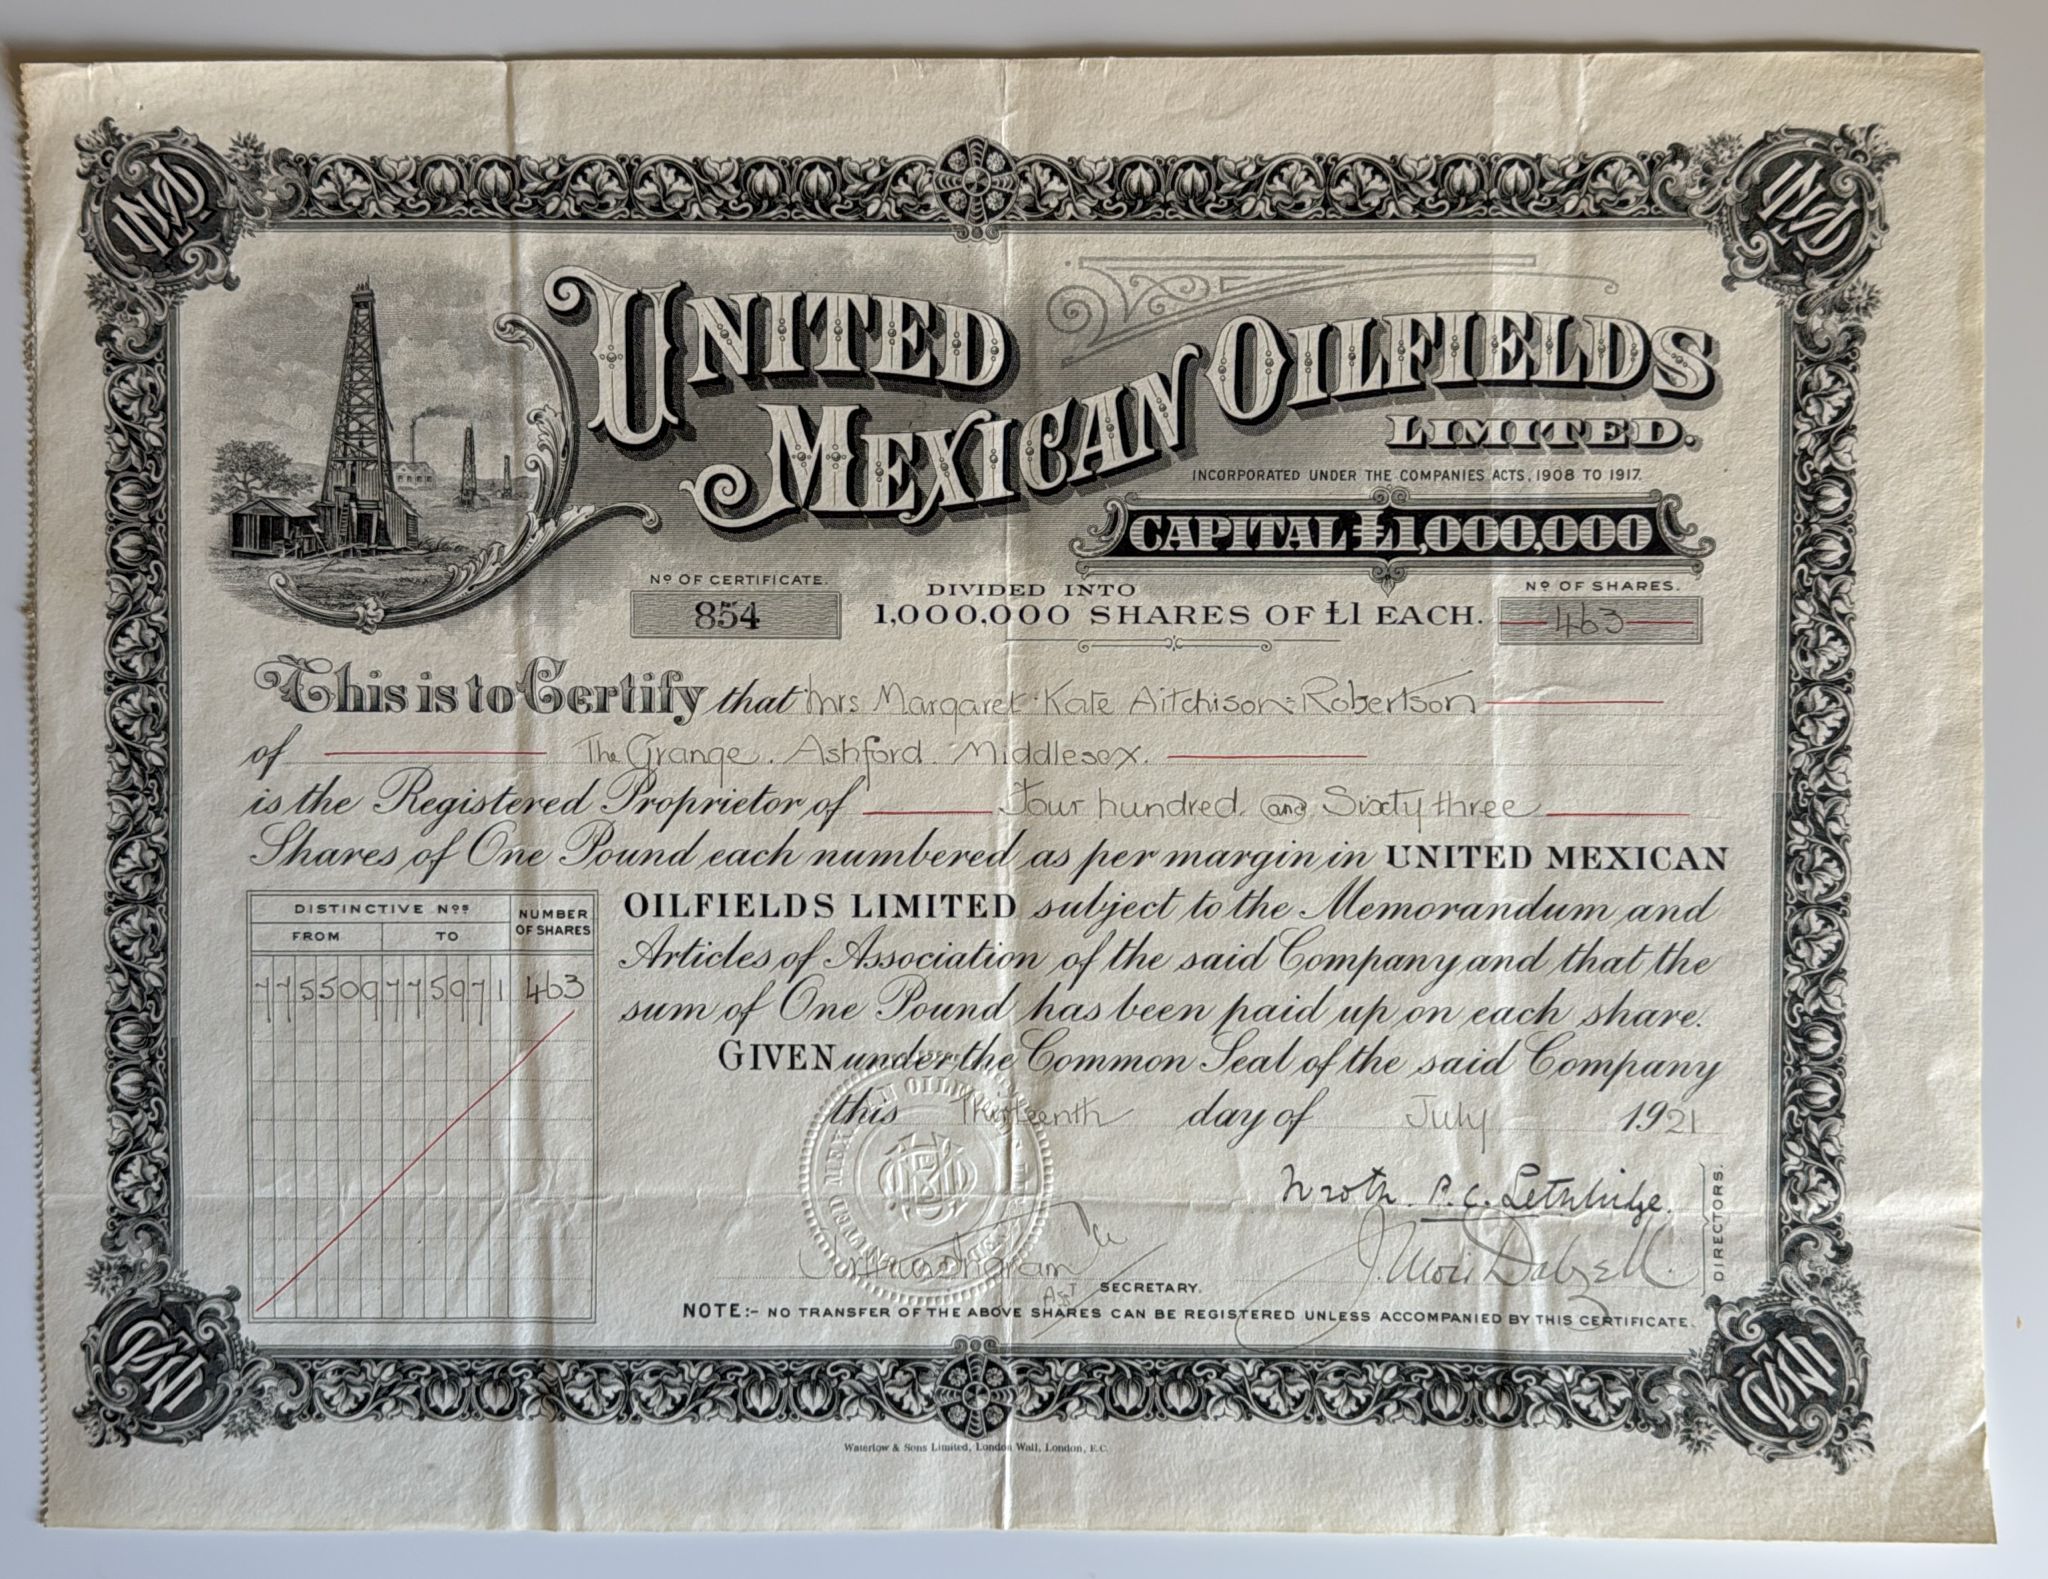 UNITED MEXICAN OILFIELDS
LIMITED.
INCORPORATED UNDER THE COMPANIES ACTS, 1908 TO 1917.
CAPITAL £1,000,000
Nº OF CERTIFICATE.
854
DIVIDED INTO
1,000,000 SHARES OF £1 EACH.
Nº OF SHARES.
463
This is to Certify that Mrs Margaret Kate Aitchison-Robertson
of The Grange. Ashford. Middlesex.
is the Registered Proprietor of Four hundred and Sixty three
Shares of One Pound each numbered as per margin in UNITED MEXICAN
OILFIELDS LIMITED subject to the Memorandum and
Articles of Association of the said Company and that the
sum of One Pound has been paid up on each share.
GIVEN under the Common Seal of the said Company
this Thirteenth day of July 1921
DISTINCTIVE Nºs
NUMBER OF SHARES
FROM TO
775509 775971 463
UNITED MEXICAN OILFIELDS LIMITED
Wroth P.C. Lethbridge.
DIRECTORS.
Asst SECRETARY.
NOTE:- NO TRANSFER OF THE ABOVE SHARES CAN BE REGISTERED UNLESS ACCOMPANIED BY THIS CERTIFICATE.
Waterlow & Sons Limited, London Wall, London, E.C.